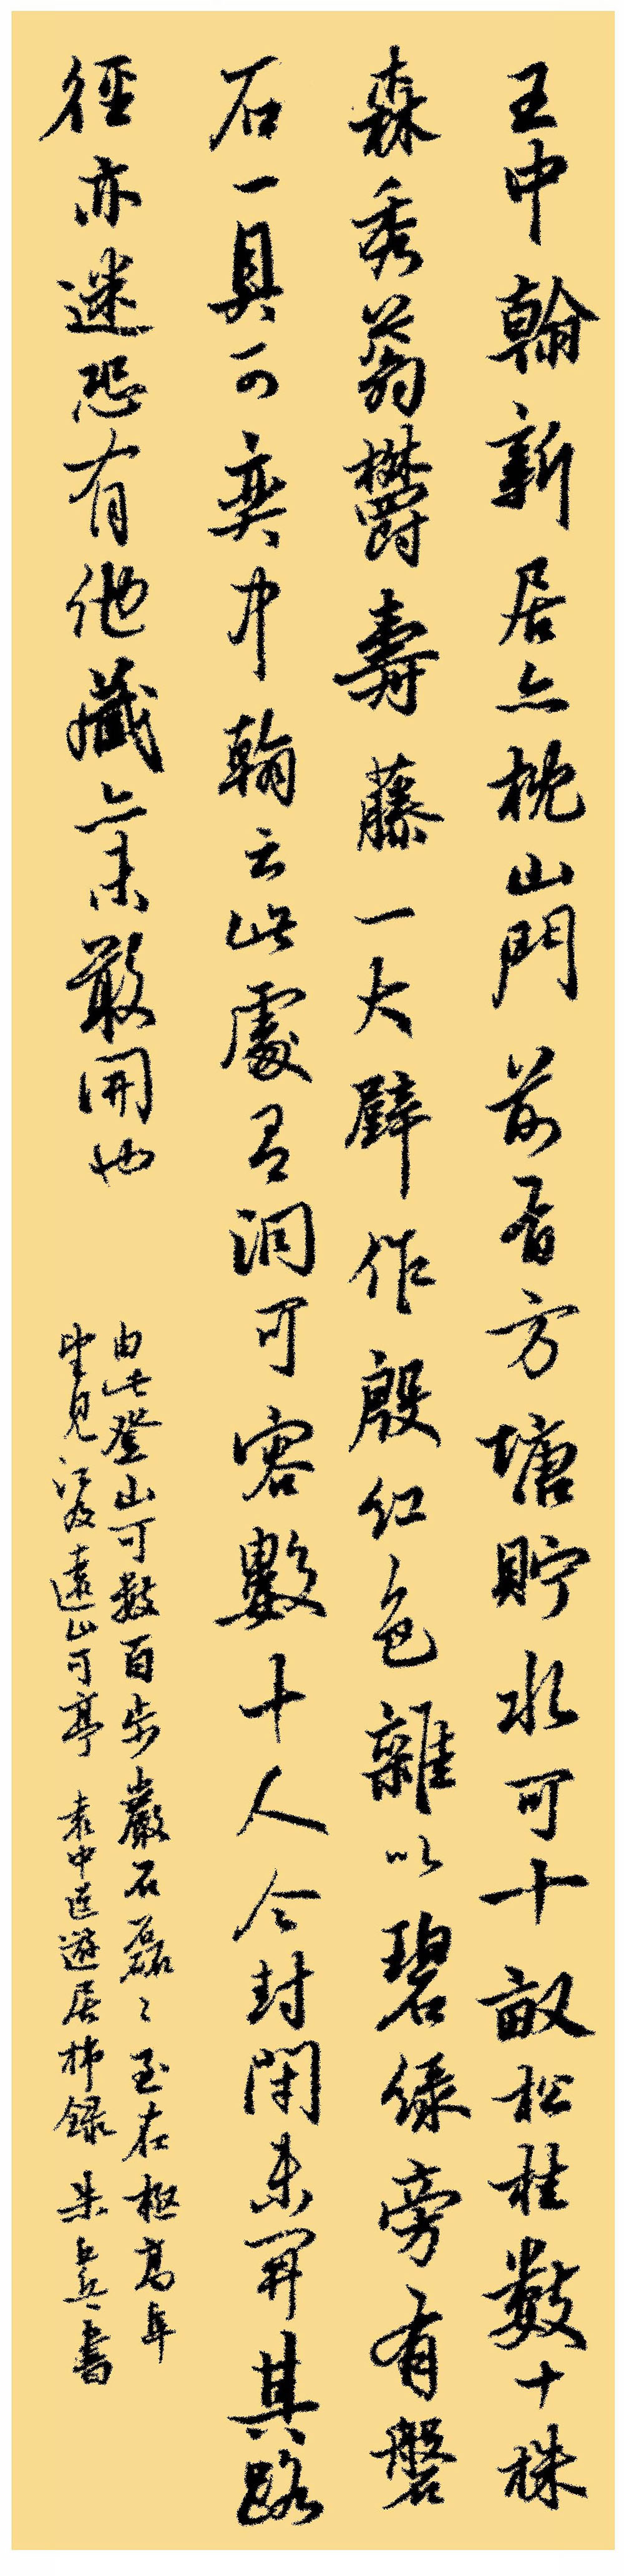 王中翰新居亦枕山門前有方塘貯水可十畝松桂數十株
森秀蓊欝壽藤一大壁作殷紅色雜以碧綠旁有磐
石一具可奕中翰云此處有洞可容數十人今封閉未開其路
徑亦迷恐有他藏亦未敢開也
由此登山可數百步巖石磊磊至在極高年
坐見江及遠山可亭 袁中道遊居柿錄 朱 書